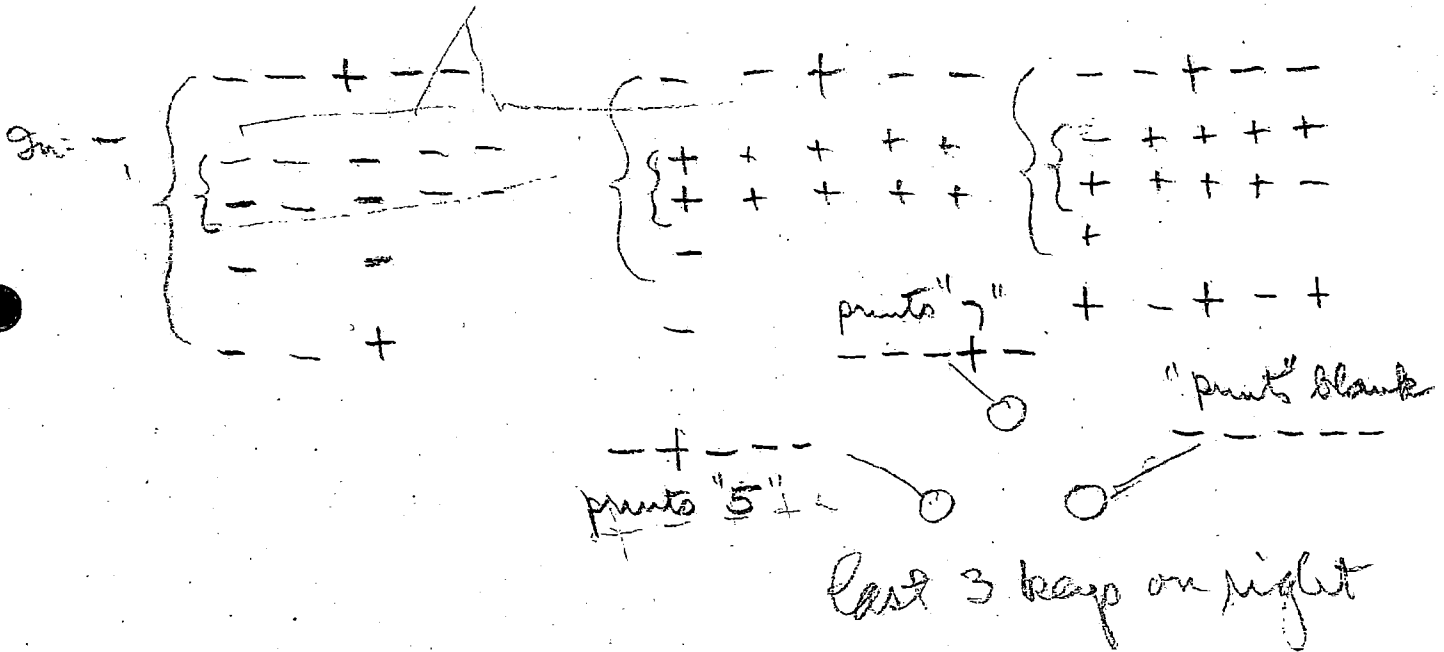 — — + — — — — + — — — — + — —
— — — — — + + + + + — + + + +
— — — — — + + + + + + + + + —
— = — +
— — + — + — + — +
prints "7"
— — — + —
"print" blank
— — — — —
— + — — —
prints "5"
last 3 keys on right